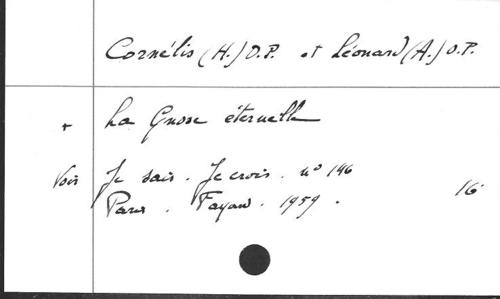 Cornélis (H.) O.P. et Léonard (A.) O.P.
+ La Gnose éternelle
Voir Je sais. Je crois. n° 146
Paris. Fayard. 1959. 16°